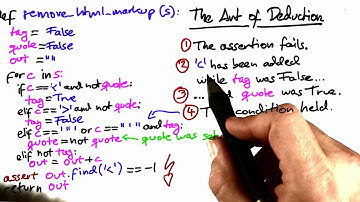 def remove_html_markup(s):
tag = False
quote = False
out = ""
for c in s:
if c == '<' and not quote:
tag = True
elif c == '>' and not quote:
tag = False
elif c == '"' or c == "'" and tag:
quote = not quote
quote was set
elif not tag:
out = out + c
assert out.find('<') == -1
return out
The Art of Deduction
① The assertion fails.
② '<' has been added
while tag was False...
③ ... quote was True.
④ condition held.